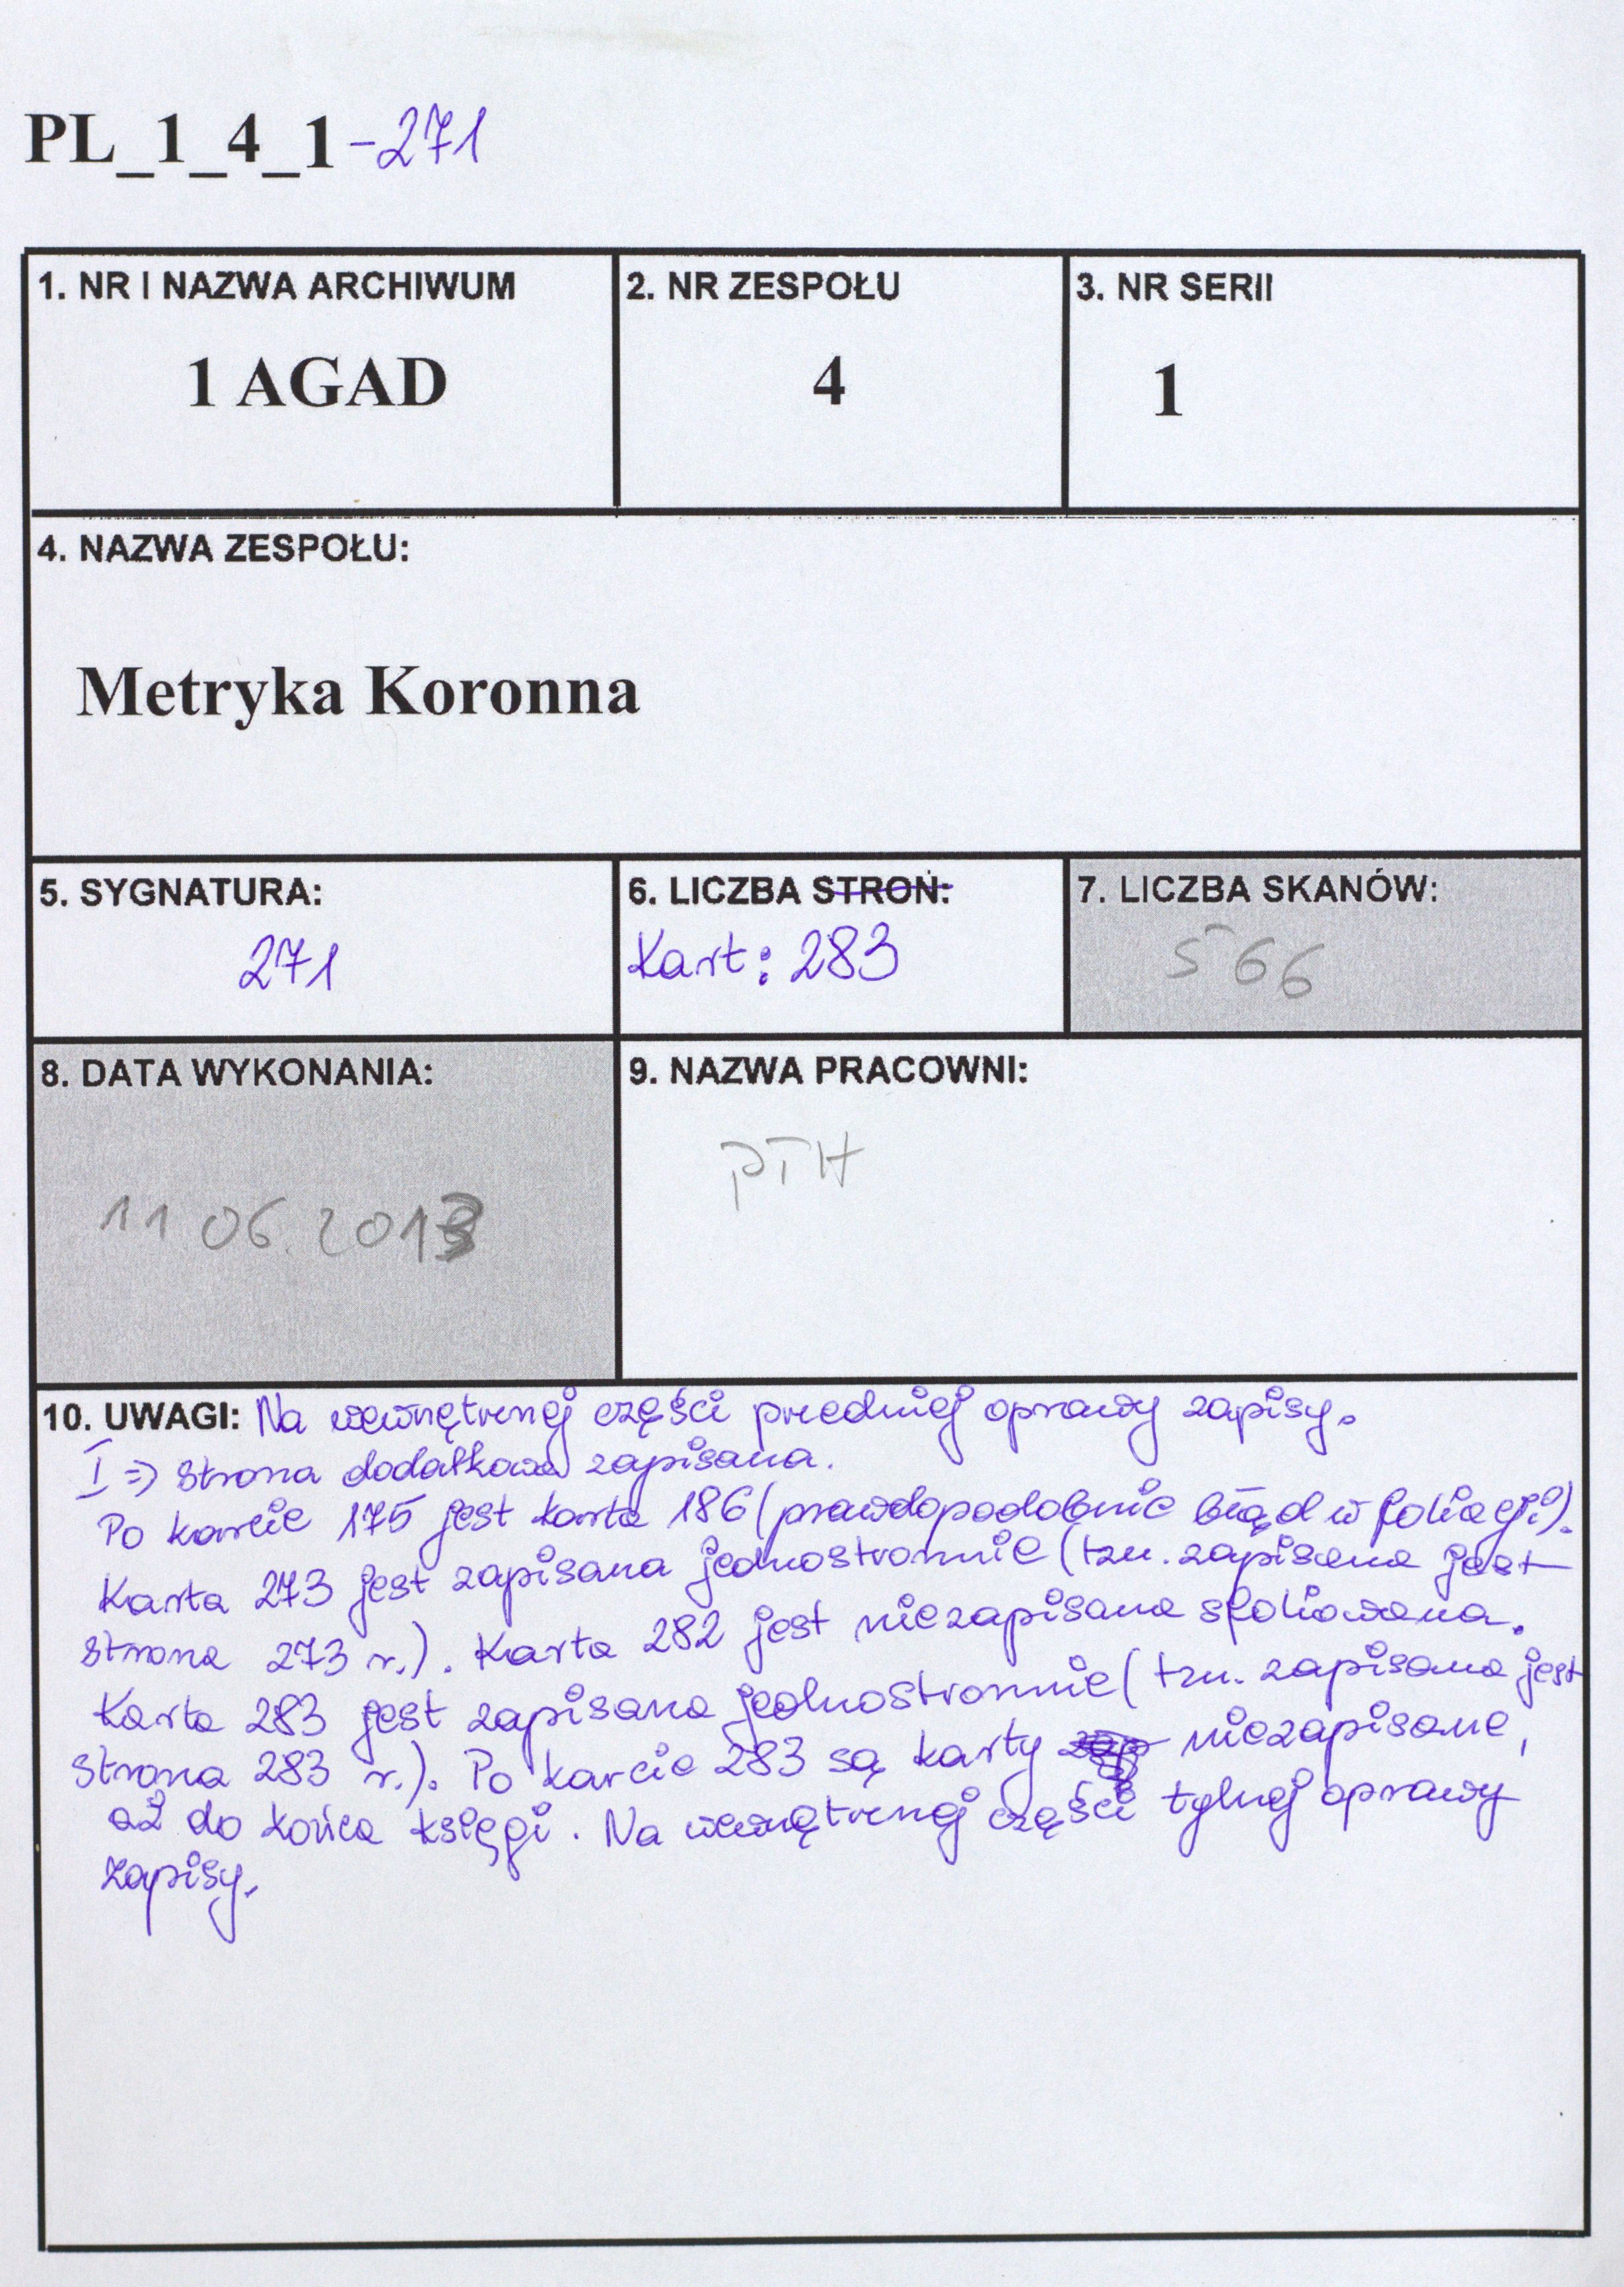 PL_1_4_1-271
1. NR I NAZWA ARCHIWUM
1 AGAD
2. NR ZESPOŁU
4
3. NR SERII
1
4. NAZWA ZESPOŁU:
Metryka Koronna
5. SYGNATURA:
271
6. LICZBA STRON:
Kart: 283
7. LICZBA SKANÓW:
566
8. DATA WYKONANIA:
11 06. 2013
9. NAZWA PRACOWNI:
PTH
10. UWAGI: Na wewnętrznej części przedniej oprawy zapisy.
I => strona dodatkowa zapisana.
Po karcie 175 jest karta 186 (prawdopodobnie błąd w foliacji).
Karta 273 jest zapisana jednostronnie (tzn. zapisana jest
strona 273 r.). Karta 282 jest niezapisana sfoliowana.
Karta 283 jest zapisana jednostronnie (tzn. zapisana jest
strona 283 r.). Po karcie 283 są karty niezapisane,
aż do końca księgi. Na wewnętrznej części tylnej oprawy
zapisy.